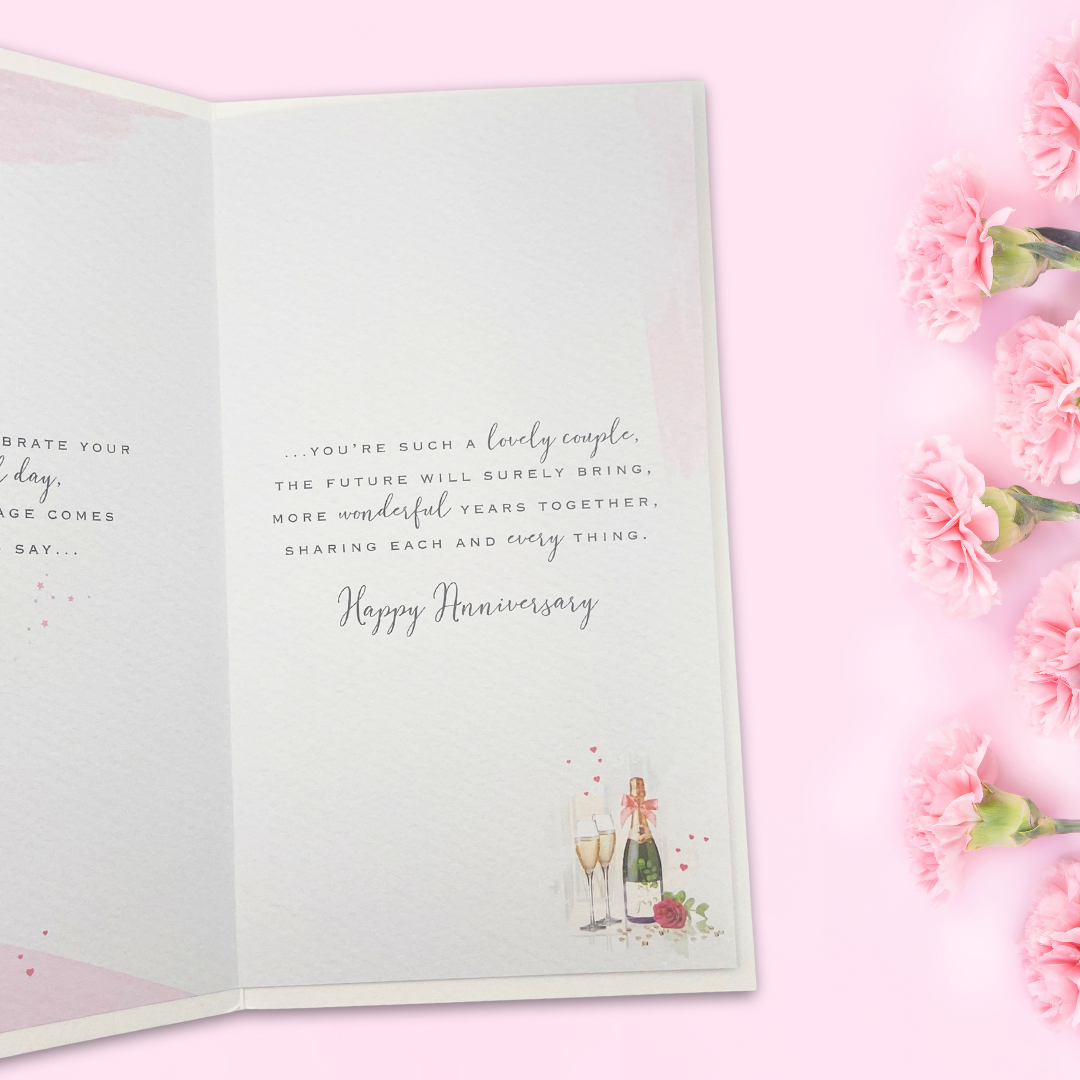 BRATE YOUR
day,
AGE COMES
SAY...
...YOU'RE SUCH A lovely couple,
THE FUTURE WILL SURELY BRING,
MORE wonderful YEARS TOGETHER,
SHARING EACH AND every THING.
Happy Anniversary